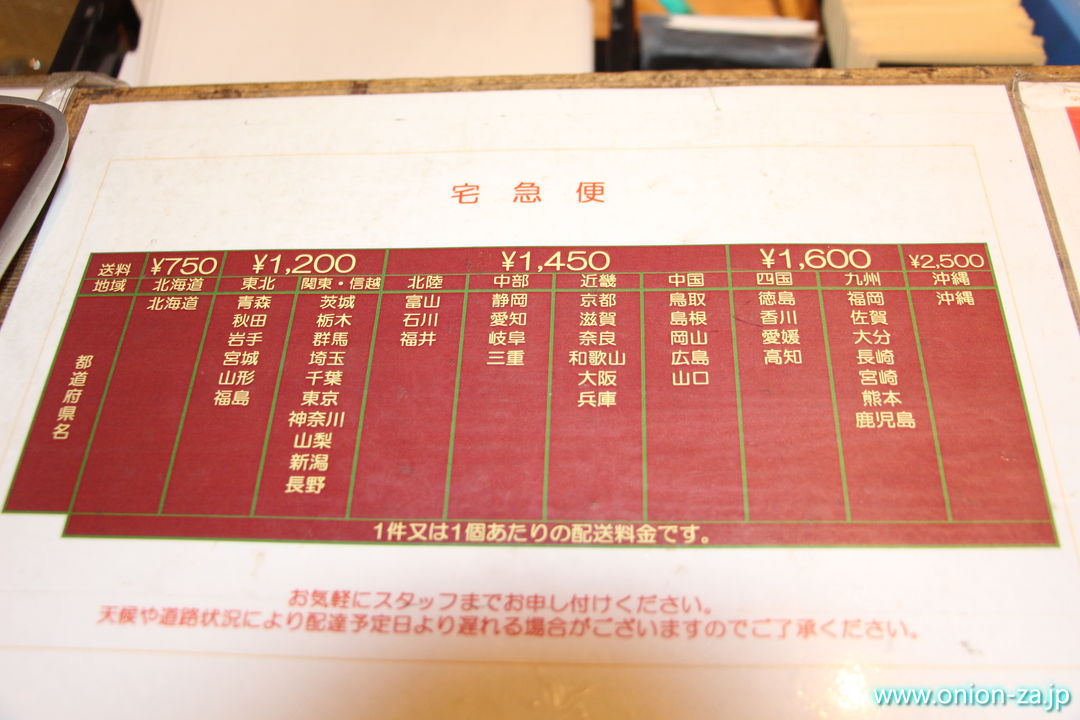 宅急便
送料 ¥750 ¥1,200 ¥1,450 ¥1,600 ¥2,500
地域 北海道 東北 関東・信越 北陸 中部 近畿 中国 四国 九州 沖縄
都道府県名
北海道 青森 茨城 富山 静岡 京都 鳥取 徳島 福岡 沖縄
秋田 栃木 石川 愛知 滋賀 島根 香川 佐賀
岩手 群馬 福井 岐阜 奈良 岡山 愛媛 大分
宮城 埼玉 三重 和歌山 広島 高知 長崎
山形 千葉 大阪 山口 宮崎
福島 東京 兵庫 熊本
神奈川 鹿児島
山梨
新潟
長野
1件又は1個あたりの配送料金です。
お気軽にスタッフまでお申し付けください。
天候や道路状況により配達予定日より遅れる場合がございますのでご了承ください。
www.onion-za.jp